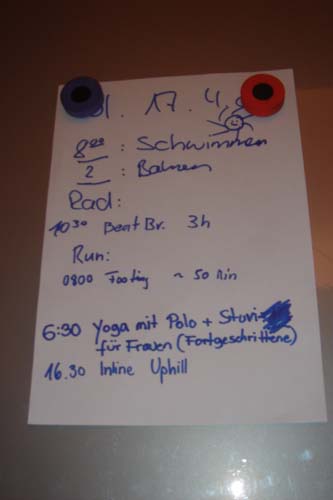 17. 4.
8⁰⁰ : Schwimmen
2 : Bahnen
Rad:
10³⁰ Beat Br. 3h
Run:
0800 Footing ~ 50 Min
6:30 Yoga mit Polo +
für Frauen (Fortgeschrittene)
16.30 Inline Uphill